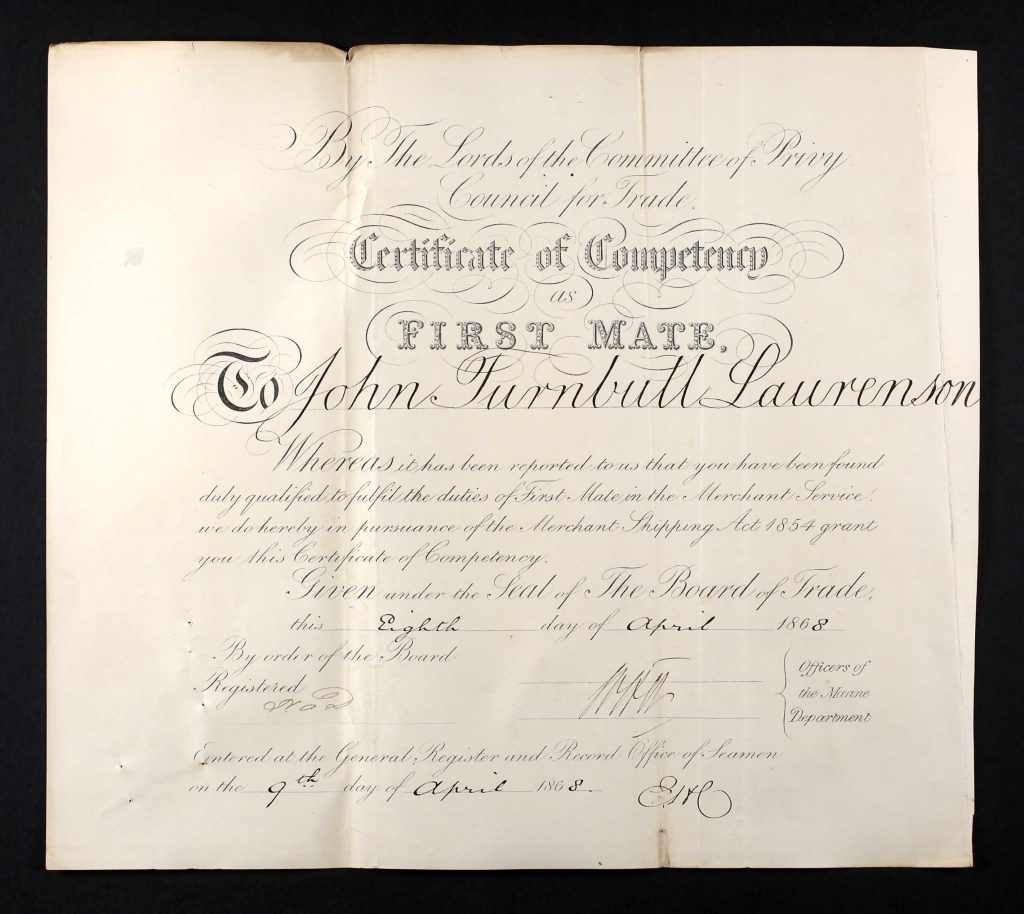 By The Lords of the Committee of Privy
Council for Trade.
Certificate of Competency
as
FIRST MATE.
To John Turnbull Laurenson
Whereas it has been reported to us that you have been found
duly qualified to fulfil the duties of First Mate in the Merchant Service.
we do hereby in pursuance of the Merchant Shipping Act 1854 grant
you this Certificate of Competency.
Given under the Seal of The Board of Trade.
this Eighth day of April 1868
By order of the Board
Registered
Officers of
the Marine
Department
Entered at the General Register and Record Office of Seamen
on the 9th day of April 1868.